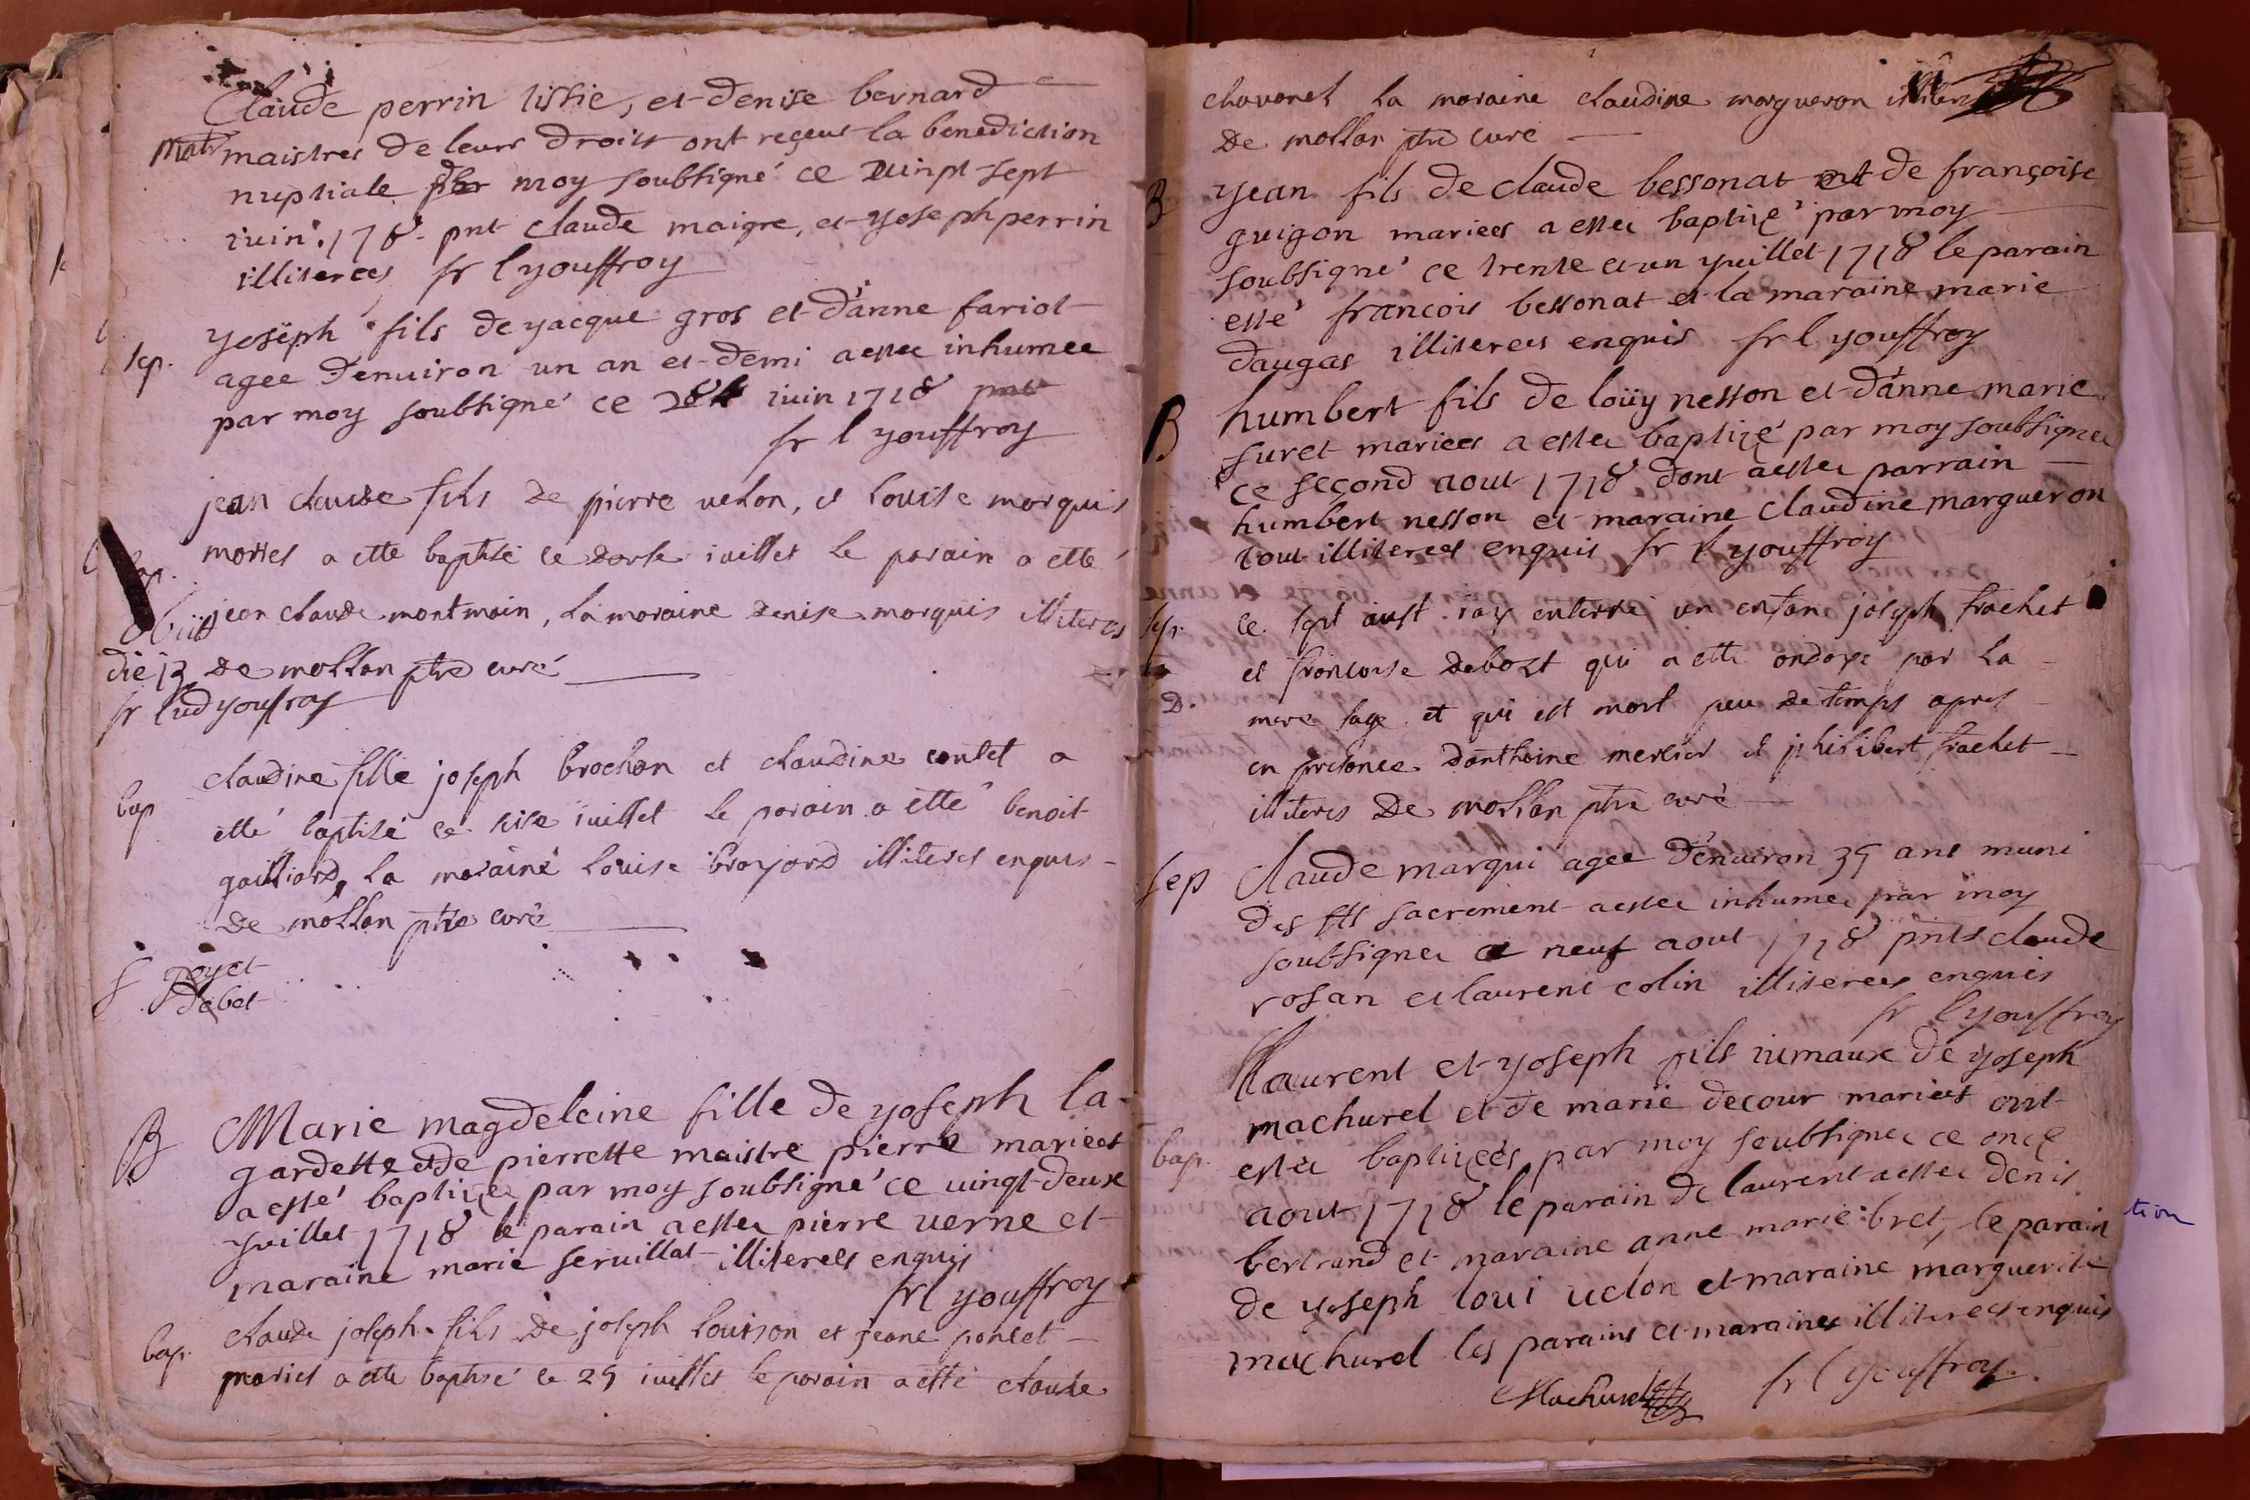 Claude perrin tissie, et denise bernard
matr maistres de leurs droits ont reçeus la benediction
nuptiale par moy soubsigné ce vinpt sept
iuin 1718 pnt claude maigre, et yoseph perrin
illiterees fr l youffroy
yoseph fils de yacque gros et d'anne fariot
sep. agee denuiron un an et demi a estee inhumee
par moy soubsigné ce 28 iuin 1718
fr l youffroy
jean claude fils de pierre uelon, et louise morquis
bap. mariés a etté baptisé ce iuillet le parain a etté
jean claude montmain, la moraine denise morquis illiteres
obiit
die 13 de mollan ptre curé
fr lud youfroy
claudine fille joseph brochon et claudine contet a
bap etté baptisé ce seise iuillet le parain a etté benoit
gailliard, la moraine louise broyard illiteres enquis
de mollan ptre curé
f. poyet
debet
B Marie magdeleine fille de yoseph la-
gardette et de pierrette maistre pierre mariees
a esté baptizee par moy soubsigné ce uingt-deuxe
yuillet 1718 le parain a estee pierre uerne et
maraine marie seruillat illiterees enquis
fr l youffroy
bap. claude joseph fils de joseph louison et jeane poncet
mariés a etté baptisé ce 29 iuillet le parain a etté claude
chavanel la moraine claudine morgueron
de mollan ptre curé
B yean fils de claude bessonat et de françoise
guigon mariees a estee baptizé par moy
soubsigné ce trente et un yuillet 1718 le parain
esté francois bessonat et la maraine marie
daugas illiterees enquis fr l youffroy
B humbert fils de loüy nesson et d'anne marie
suret mariees a estee baptizé par moy soubsignee
ce second aout 1718 dont a estee parrain
humbert nesson et maraine claudine margueron
tout illiterees enquis fr l youffroy
sep. ce sept aust iay enterré un enfan joseph frachet
et francoise debost qui a etté ondoyé par la
D. mere sage et qui est mort peu de temps apres
en presence d'anthoine mercier et philibert frachet
illiteres de mollan ptre curé
sep Claude marqui agee d'enuiron 35 ans muni
des sts sacrement a estee inhumee par moy
soubsignee ce neuf aout 1718 pnts claude
rosan et laurent colin illiterees enquis
fr l youffroy
laurent et yoseph fils iumaux de yoseph
machurel et de marie decour mariees ont
bap. estee baptizeés par moy soubsignee ce onze
aout 1718 le parain de laurent a estee denis
bertrand et maraine anne marie bret, le parain
de yoseph loui uelon et maraine marguerite
machurel les parains et maraines illiterees enquis
Machurel fr l youffroy.
tion